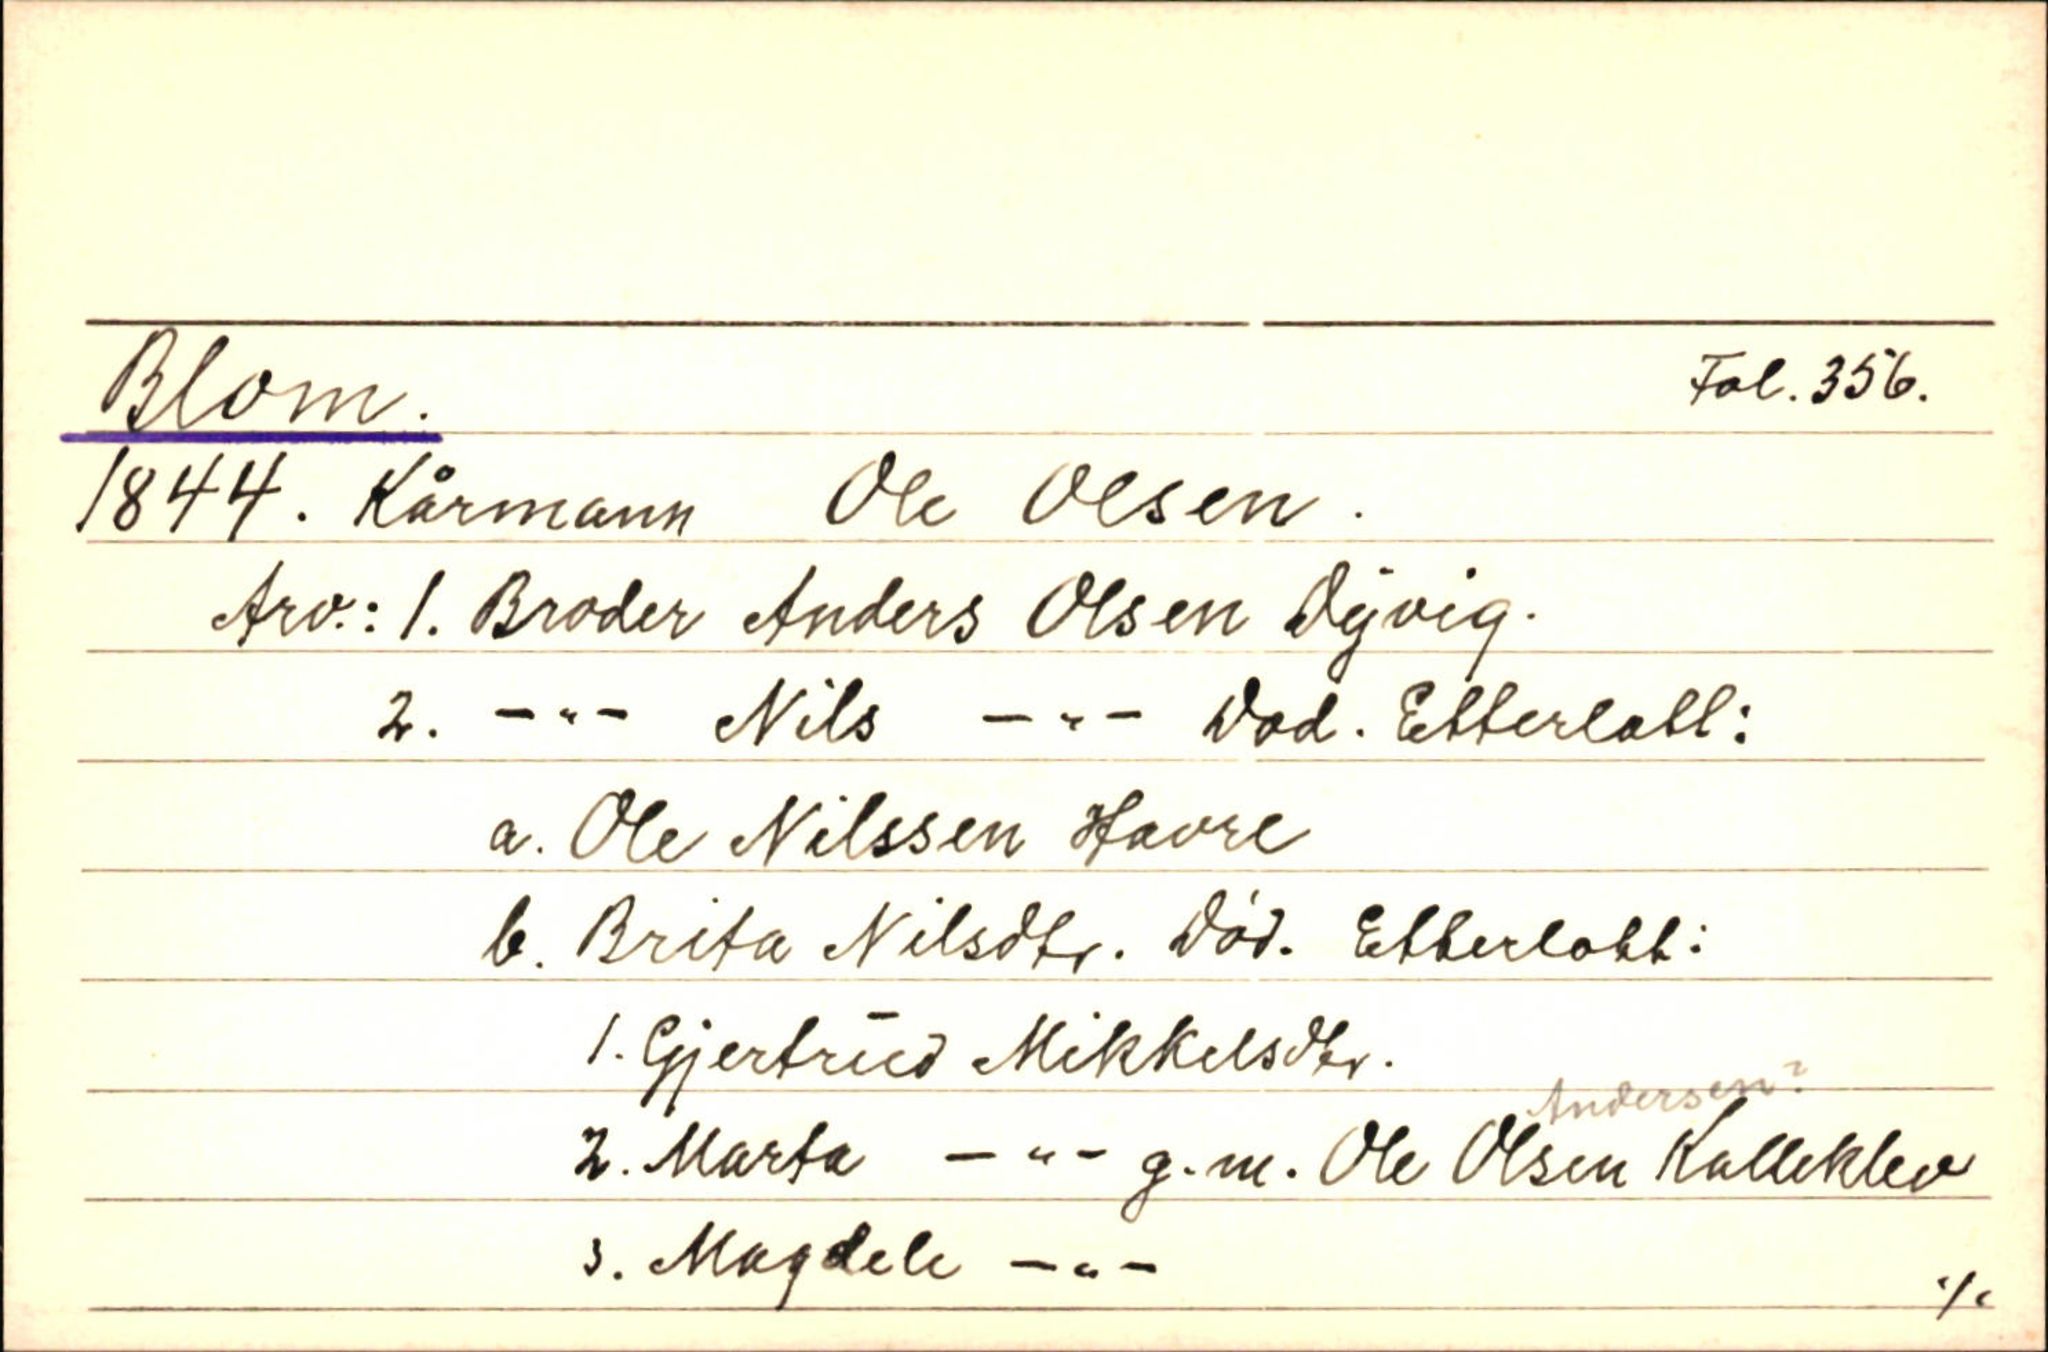 Blom. Fol. 356.
1844. Kårmann Ole Olsen.
Arv.: 1. Broder Anders Olsen Dyvig.
2. —"— Nils —"— Død. Etterlatt:
a. Ole Nilssen Havre
b. Brita Nilsdtr. Död. Etterlatt:
1. Gjertrud Mikkelsdtr.
Andersen?
2. Marta —"— g.m. Ole Olsen Kalleklev
3. Magdele —"—
./.